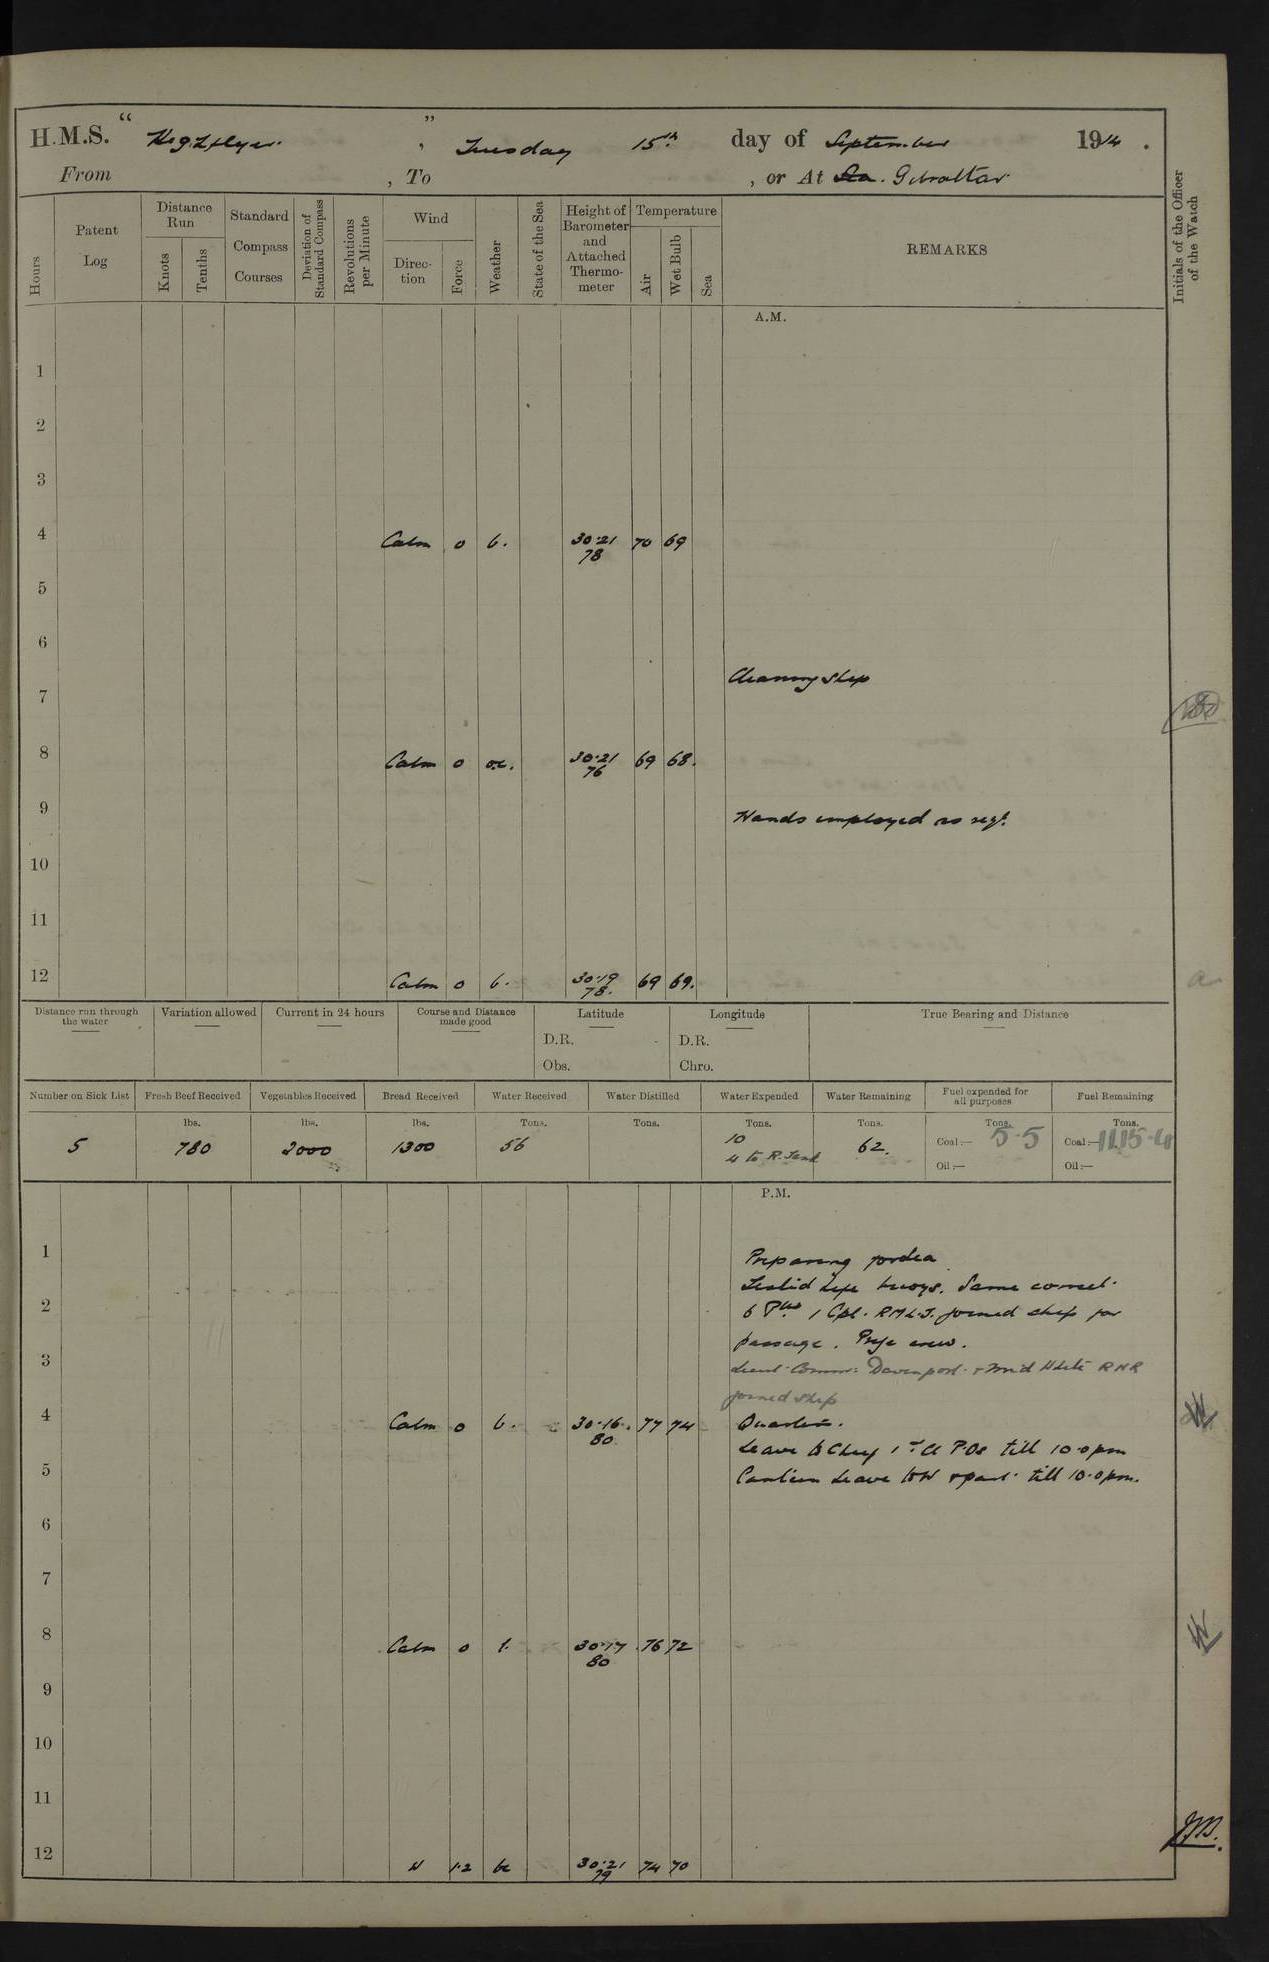 H.M.S. " Highflyer. " , Tuesday 15th day of September 1914 .
From , To , or At Sea. Gibraltar
Hours
Patent Log
Distance Run
Knots
Tenths
Standard Compass Courses
Deviation of Standard Compass
Revolutions per Minute
Wind
Direction
Force
Weather
State of the Sea
Height of Barometer and Attached Thermometer
Temperature
Air
Wet Bulb
Sea
REMARKS
Initials of the Officer of the Watch
A.M.
1
2
3
4 Calm 0 b. 30.21 78 70 69
5
6
Cleaning ship
7
8 Calm 0 oc. 30.21 76 69 68.
9 Hands employed as req.
10
11
12 Calm 0 b. 30.19 78. 69 69.
Distance run through the water
Variation allowed
Current in 24 hours
Course and Distance made good
Latitude
D.R.
Obs.
Longitude
D.R.
Chro.
True Bearing and Distance
Number on Sick List Fresh Beef Received Vegetables Received Bread Received Water Received Water Distilled Water Expended Water Remaining Fuel expended for all purposes Fuel Remaining
lbs. lbs. lbs. Tons. Tons. Tons. Tons. Tons. Tons.
5 780 2000 1300 56 10 62. Coal:— 5.5 Coal:— 1115.4
4 to R. Tank
Oil:— Oil:—
P.M.
1 Preparing for sea
Tested Life buoys. Same correct.
2 6 Ptes 1 Cpl. R.M.L.I. joined ship for
passage. Prize crew.
3 Lieut. Comm. Davenport & Mid White RNR
joined ship
4 Calm 0 b. 30.16. 80 77 74 Quarters.
Leave to Chief 1st Cl POs till 10.0 pm
5 Canteen Leave to W part till 10.0 pm.
6
7
8 Calm 0 30.17 80 76 72
9
10
11
12 1.2 bc 30.21 79 74 70